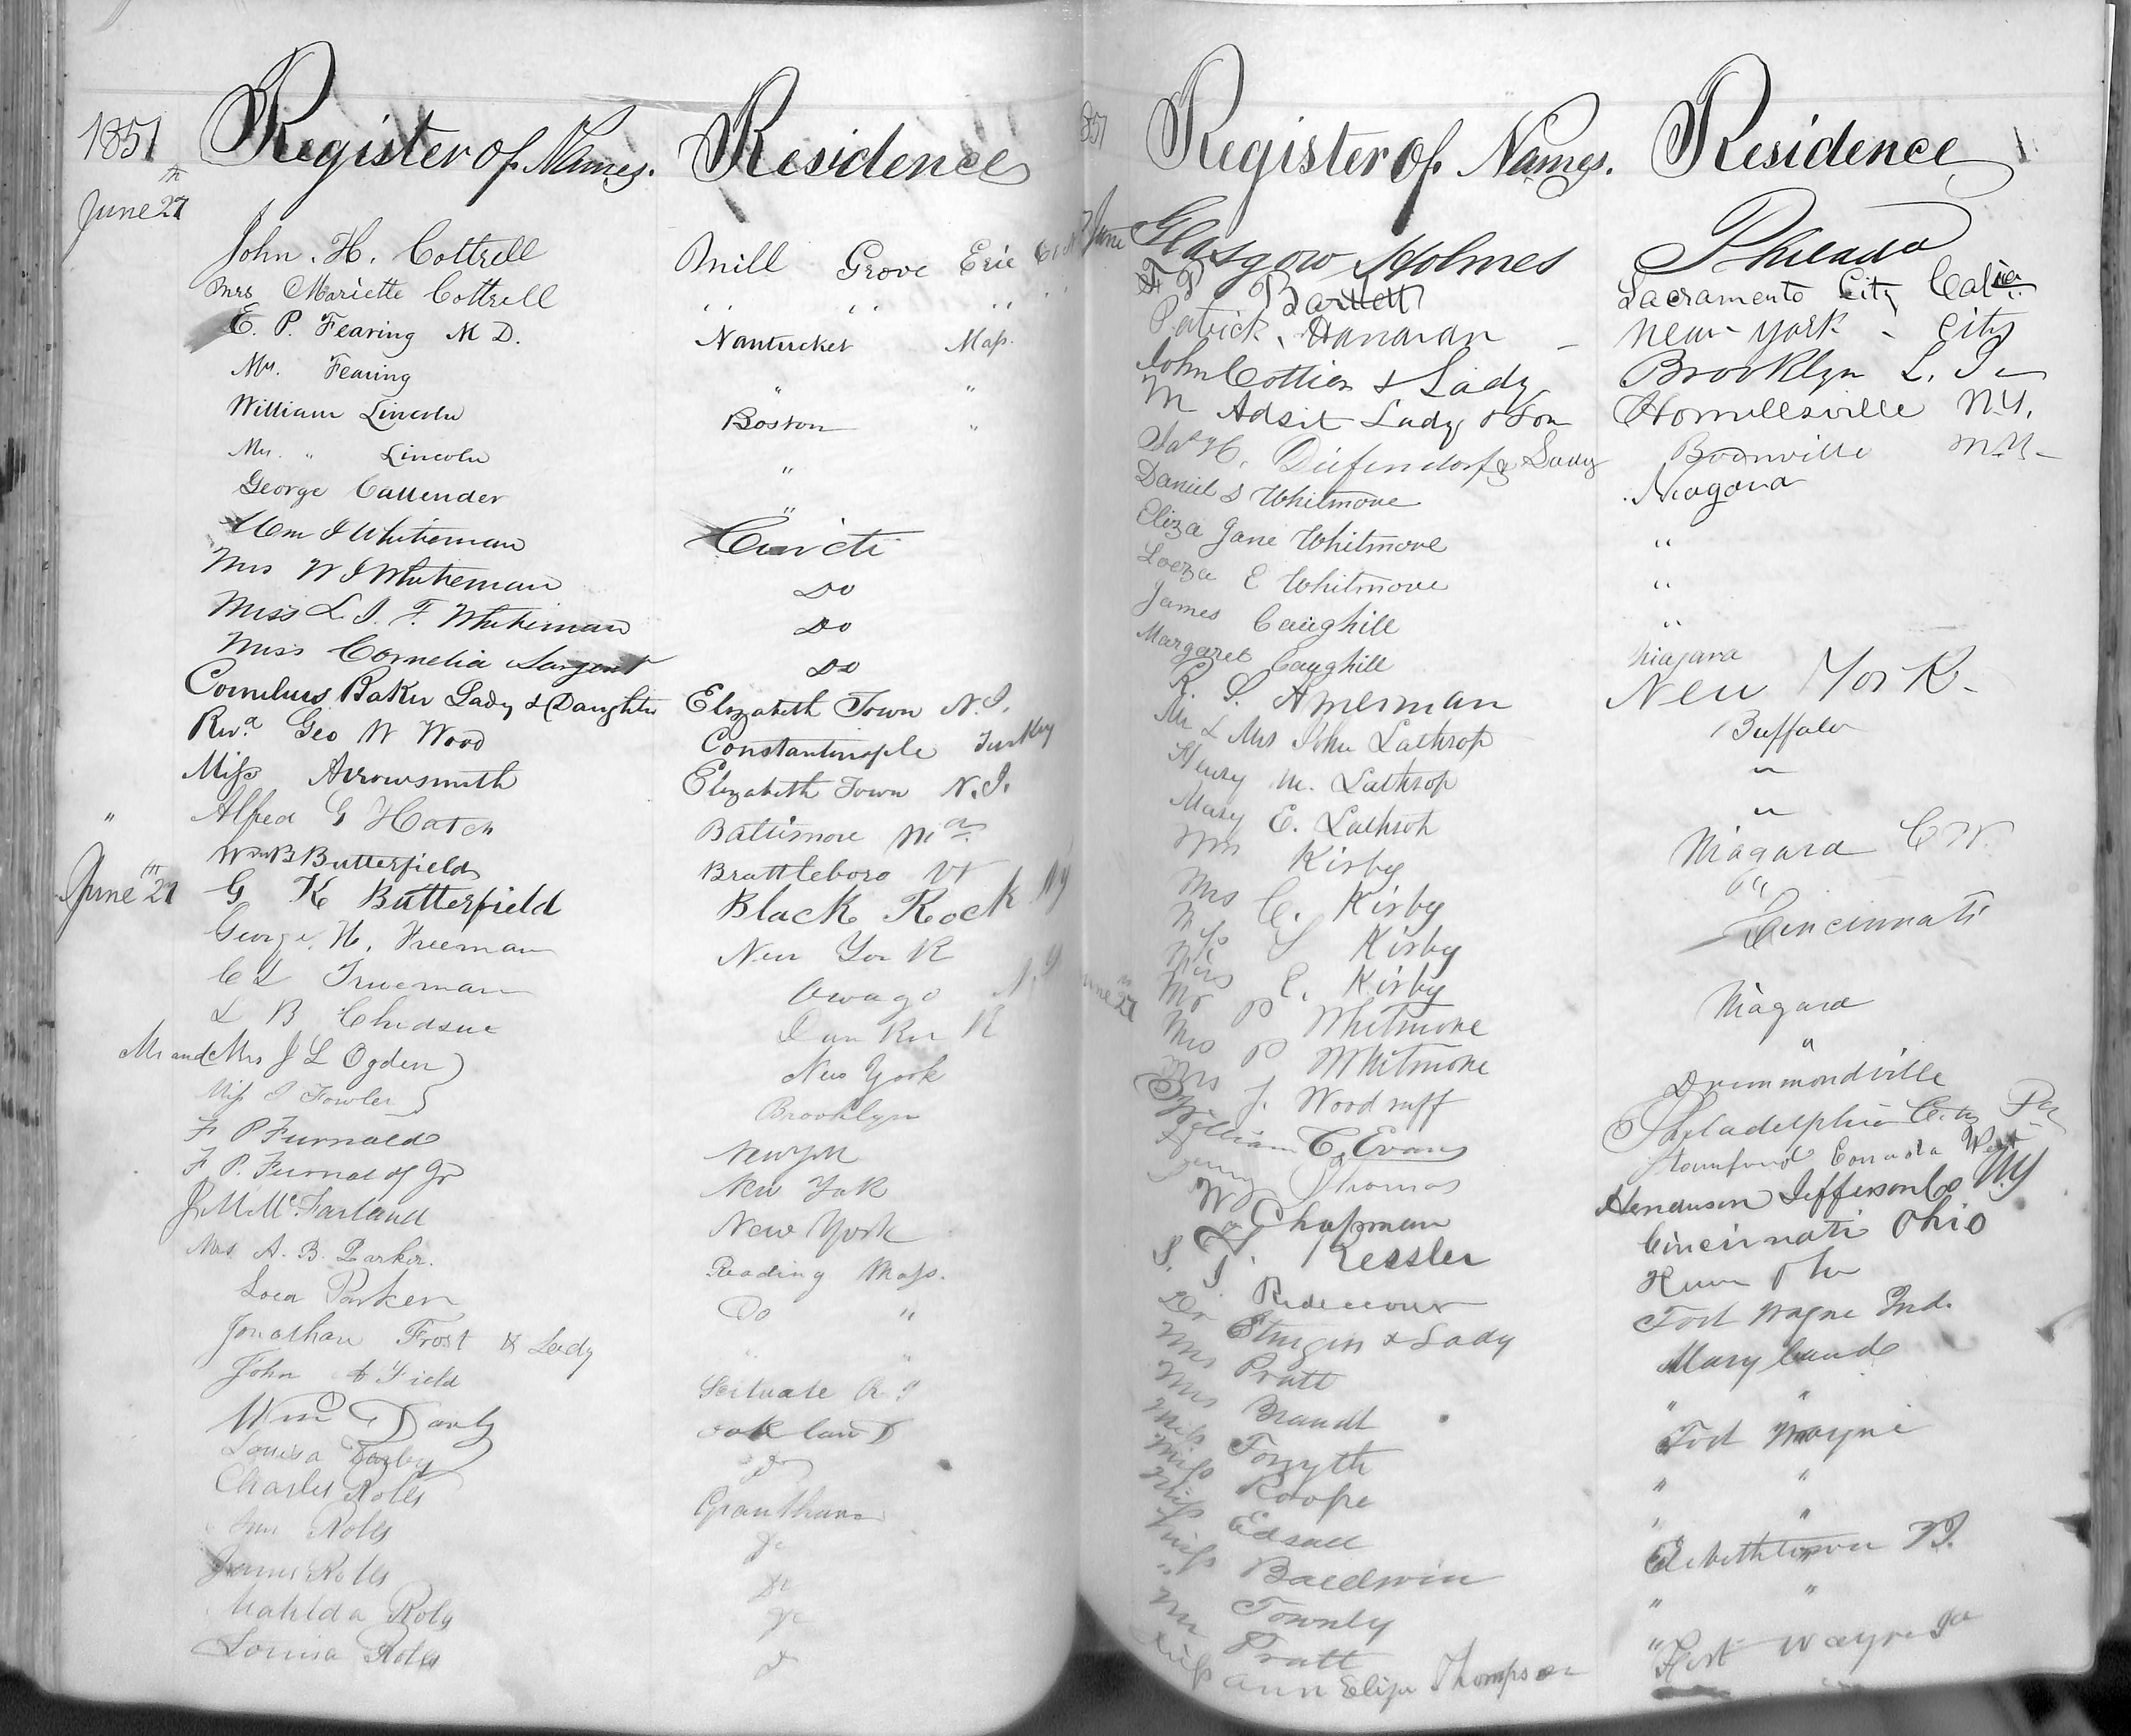 1851 Register of Names. Residence
June 27th
John. H. Cottrell Mill Grove Erie Co
Mrs Mariette Cottrell " " "
E. P. Fearing M D. Nantucket Mass.
Mrs. Fearing " "
William Lincoln Boston "
Mrs. " Lincoln "
George Callender "
Wm J Whiteman Cincti
Mrs W J Whiteman Do
Miss L. J. F. Whiteman Do
Miss Cornelia Sargent Do
Cornelius Baker Lady & Daughter Elizabeth Town N. J.
Revd Geo W Wood Constantinople Turkey
Miss Arrowsmith Elizabeth Town N. J.
" Alfred G Hatch Baltimore Md
Wm B Butterfield Brattleboro Vt
June 27th G K Butterfield Black Rock NY
George. H. Freeman New York
C L Trueman Owago N. Y
L B Chidsue
Mr and Mrs J L Ogden New York
Miss Fowler Brooklyn
F P Furnald New York
F. P. Furnald Jr New York
J M McFarland New York
Mrs. A. B. Parker. Reading Mass.
Loea Parker Do "
Jonathan Frost & Lady " "
John A Field Scituate R. I
Wm Darby oakland
Louisa Darby
Charles Rolls Grantham
Rolls
James Rolls
Matilda Rolls
Louisa Rolls
1851 Register of Names. Residence
June Glasgow Holmes Philada
F P Bartlett Sacramento City
Patrick Hanavan New-York - City
John Cottier & Lady Brooklyn L. I
M Adsit Lady & Son Hornellsville N.Y.
H. Diefendorf & Lady Boonville N.Y.
Daniel S Whitmore Niagara
Eliza Jane Whitmore "
Loeza E Whitmore "
James Caughill "
Margaret Caughill Niagara
R. S. Amerman New York-
Mr & Mrs John Lathrop Buffalo
Henry M. Lathrop "
Mary E. Lathrop "
Mrs Kirby Niagara C W.
Mrs C. Kirby "
Miss S Kirby Cincinnati
Miss E. Kirby
June 27th Mr P Whitmore Niagara
Mrs P Whitmore "
Mrs J. Woodruff Drummondville
William C. Evans Philadelphia City Pa
Thomas Stamford Canada West
W Chapman Henderson Jefferson Co NY
Kessler Cincinnati Ohio
S. J. Ridenour
Dr Sturgis & Lady Fort Wayne Ind.
Mrs Pratt Maryland
Mrs Brandt " "
Miss Forsyth Fort Wayne
Miss Roope " "
Miss Edsall " "
Miss Baldwin Elisbethtown N J.
" Townly " "
Mr Pratt "
Miss Ann Eliza Thompson Fort Wayne Ia